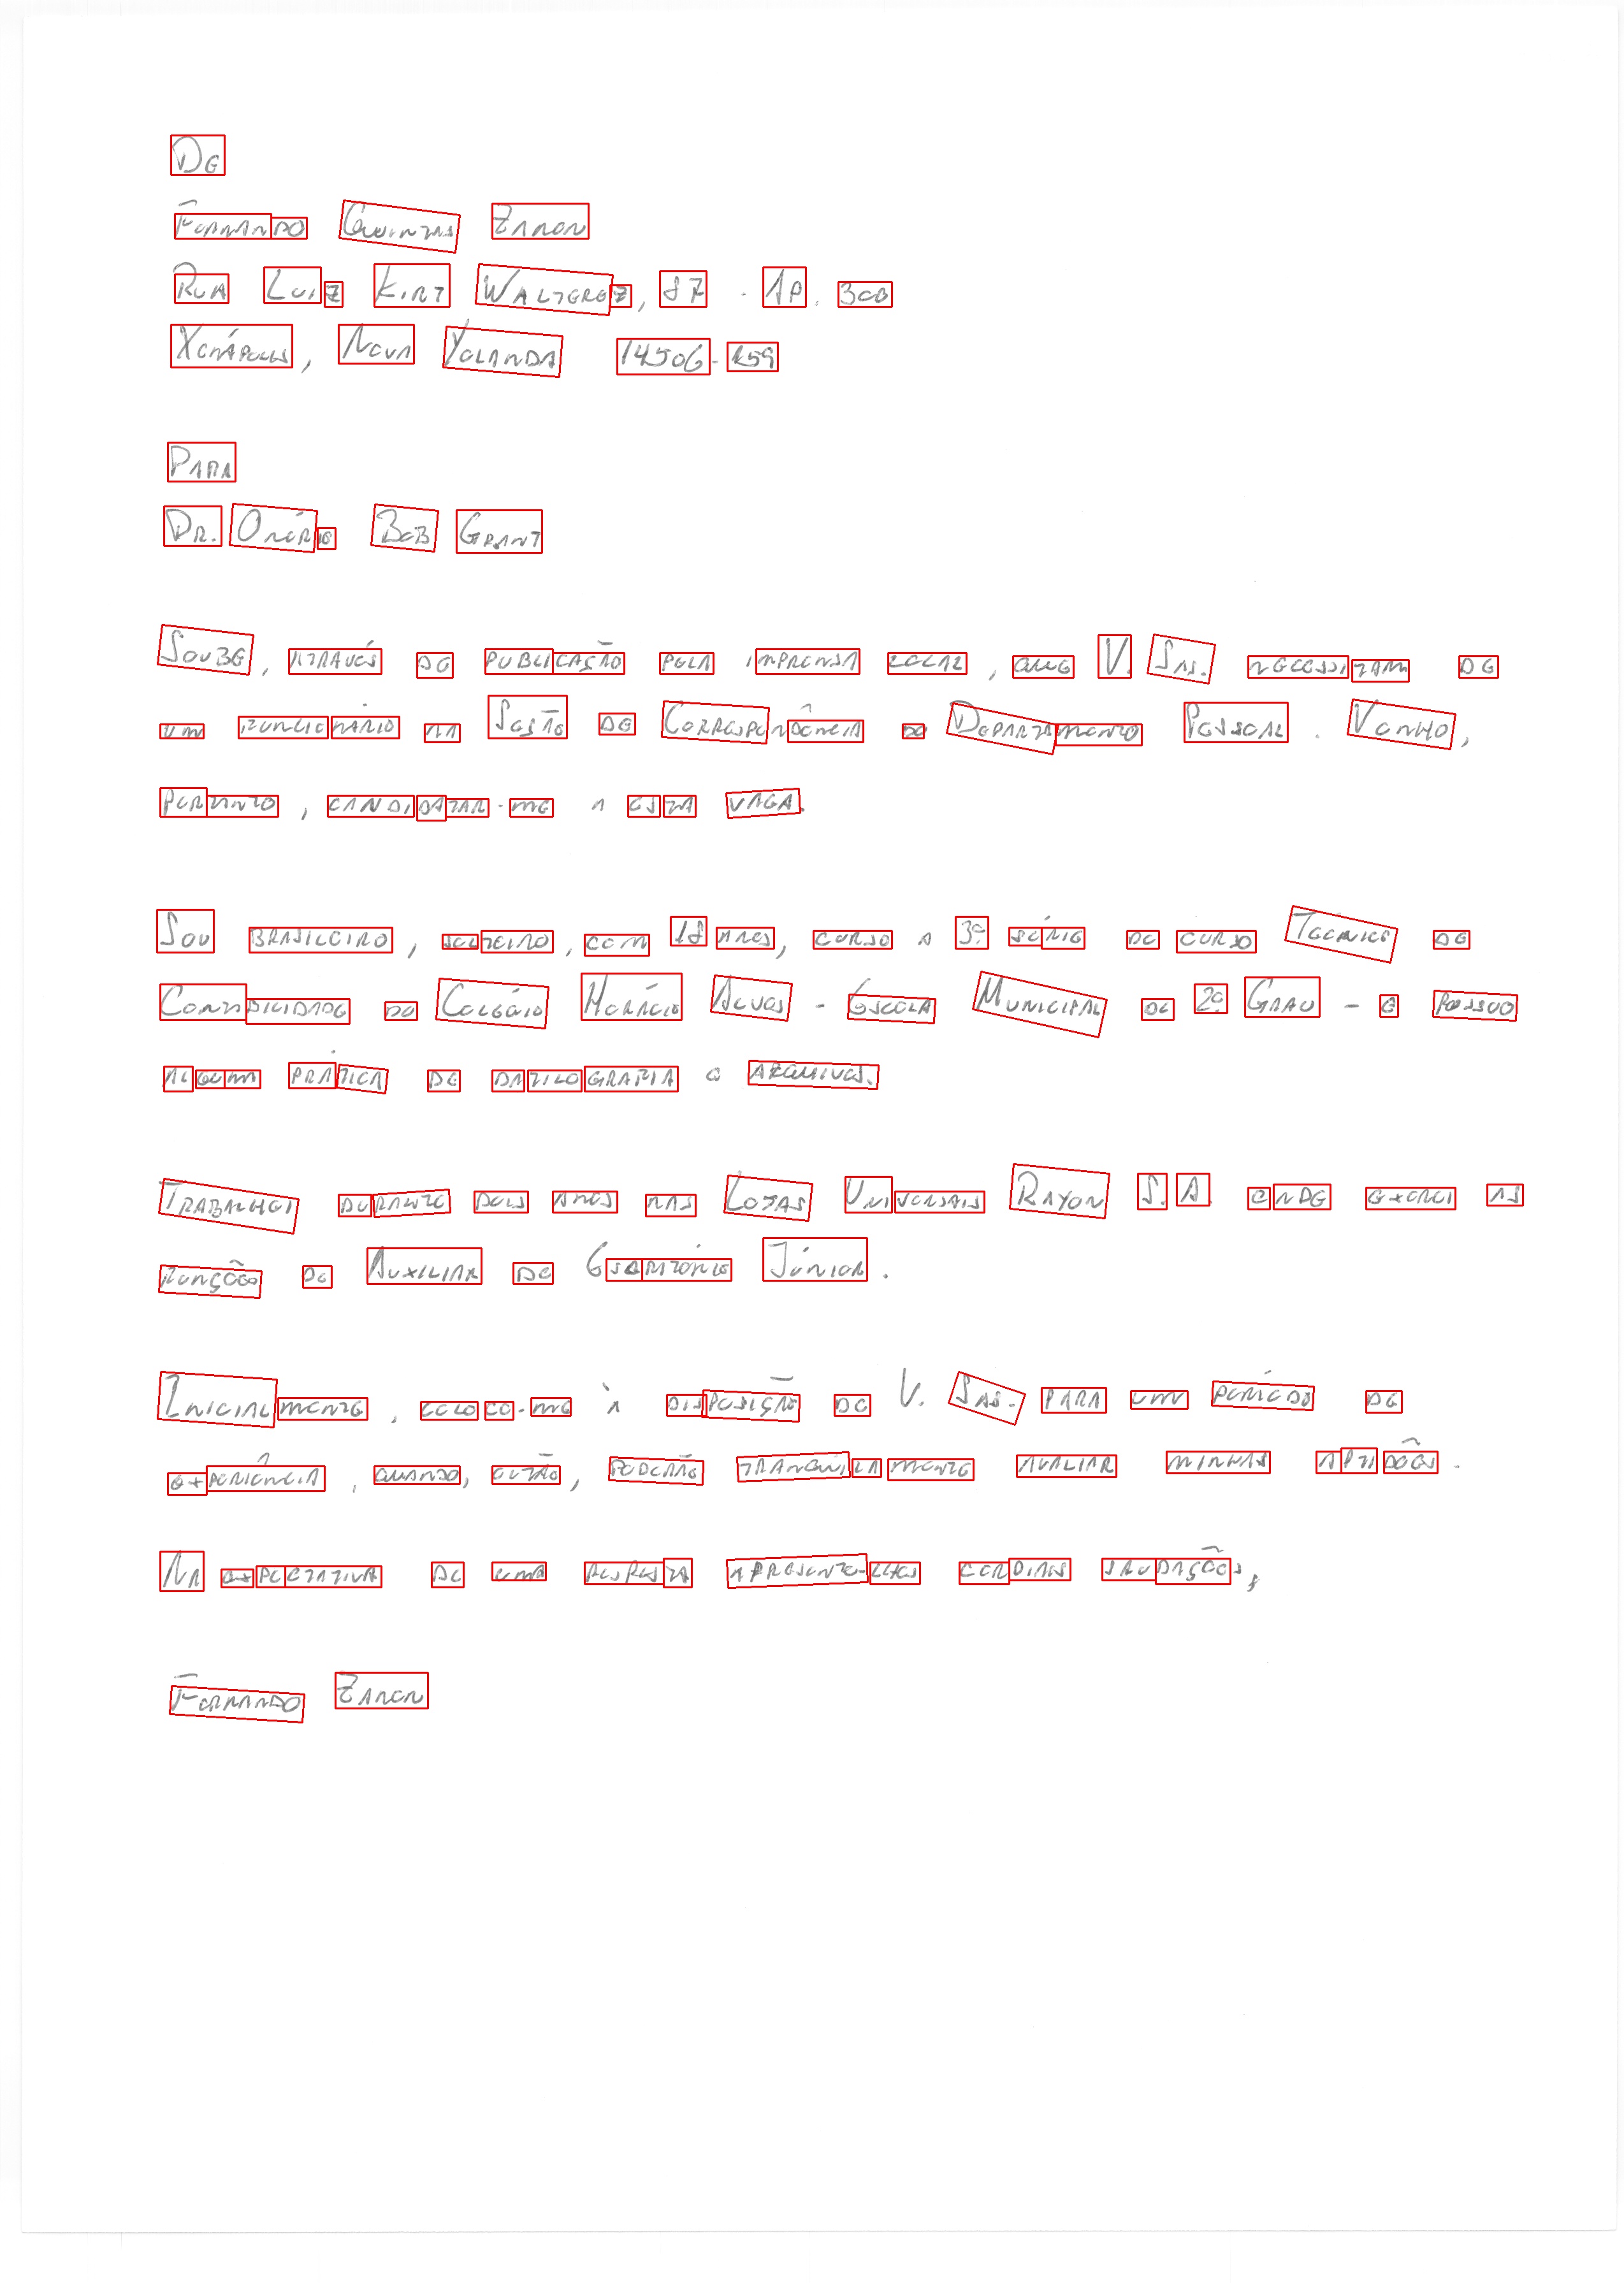 De
Fernando Quintas Zanon
Rua Luiz Kirt Walterez, 87 - Ap. 30B
Xenápolis, Nova Yolanda 14506-459
Para
Dr. Onório Bob Grant
Soube, através de publicação pela imprensa local, que V. Sas. necessitam de
um funcionário na Seção de Correspondência do Departamento Pessoal. Venho,
portanto, candidatar-me a esta vaga.
Sou brasileiro, solteiro, com 18 anos, curso a 3ª série do curso Técnico de
Contabilidade do Colégio Horácio Alves - Escola Municipal de 2º Grau - e possuo
alguma prática de datilografia e arquivos.
Trabalhei durante dois anos nas Lojas Universais Rayon S.A. onde exerci as
funções de Auxiliar de Escritório Júnior.
Inicialmente, coloco-me à disposição de V. Sas. para um período de
experiência, quando, então, poderão tranquilamente avaliar minhas aptidões.
Na expectativa de uma resposta apresento-lhes cordiais saudações,
Fernando Zanon